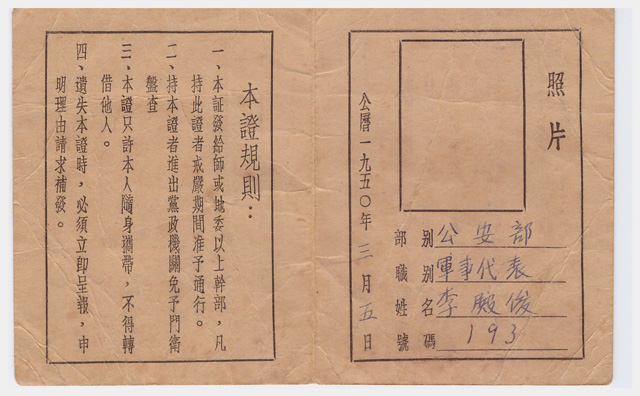 照片
部別 公安部
職別 軍事代表
姓名 李殿俊
號碼 193
公曆一九五〇年三月五日
本證規則：
一、本証發給師或地委以上幹部，凡
持此證者戒嚴期間准予通行。
二、持本證者進出黨政機關免予門衛
盤查
三、本證只許本人隨身攜帶，不得轉
借他人。
四、遺失本證時，必須立即呈報，申
明理由請求補發。